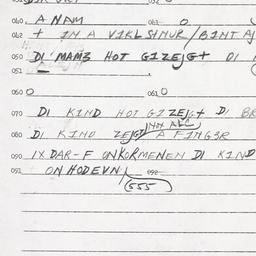 040. A NAM 041. O
042 + IN A VIKLSHNUR / BINT AJ
050 DI MAM3 HOT GIZEJGT DI
051
060 O 061 O
070 DI KIND HOT GIZEJGT DI BR
080 DI KIND ZEJGT A FING3R
090 IX DAR-F ONKORMENEN DI KIND
091 ON HODEVN 092
(555)